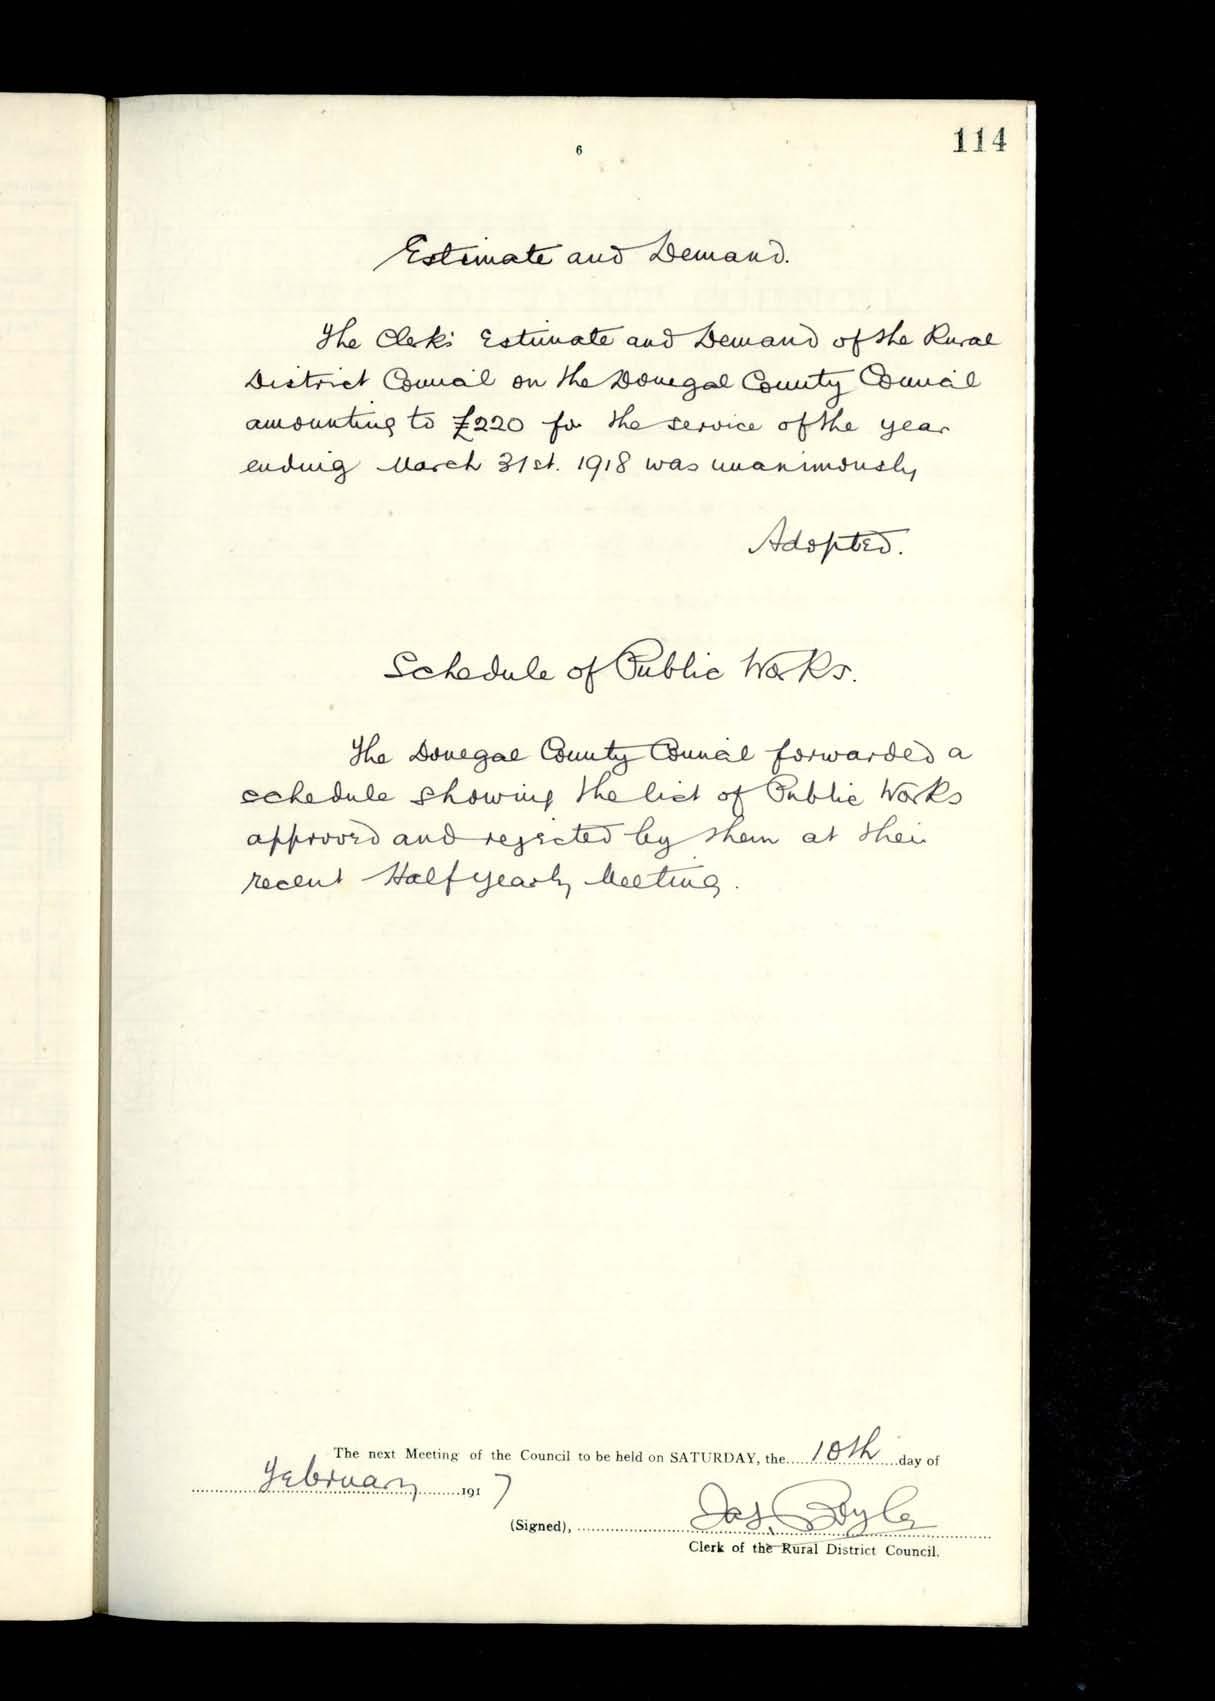 114
6
Estimate and Demand.
The Clerk's Estimate and Demand of the Rural
District Council on the Donegal County Council
amounting to £220 for the service of the year
ending March 31st. 1918 was unanimously
Adopted.
Schedule of Public Works.
The Donegal County Council forwarded a
schedule showing the list of Public Works
approved and rejected by them at their
recent Half yearly Meeting.
The next Meeting of the Council to be held on SATURDAY, the 10th day of
February 1917
(Signed), Jas. Boyle
Clerk of the Rural District Council.